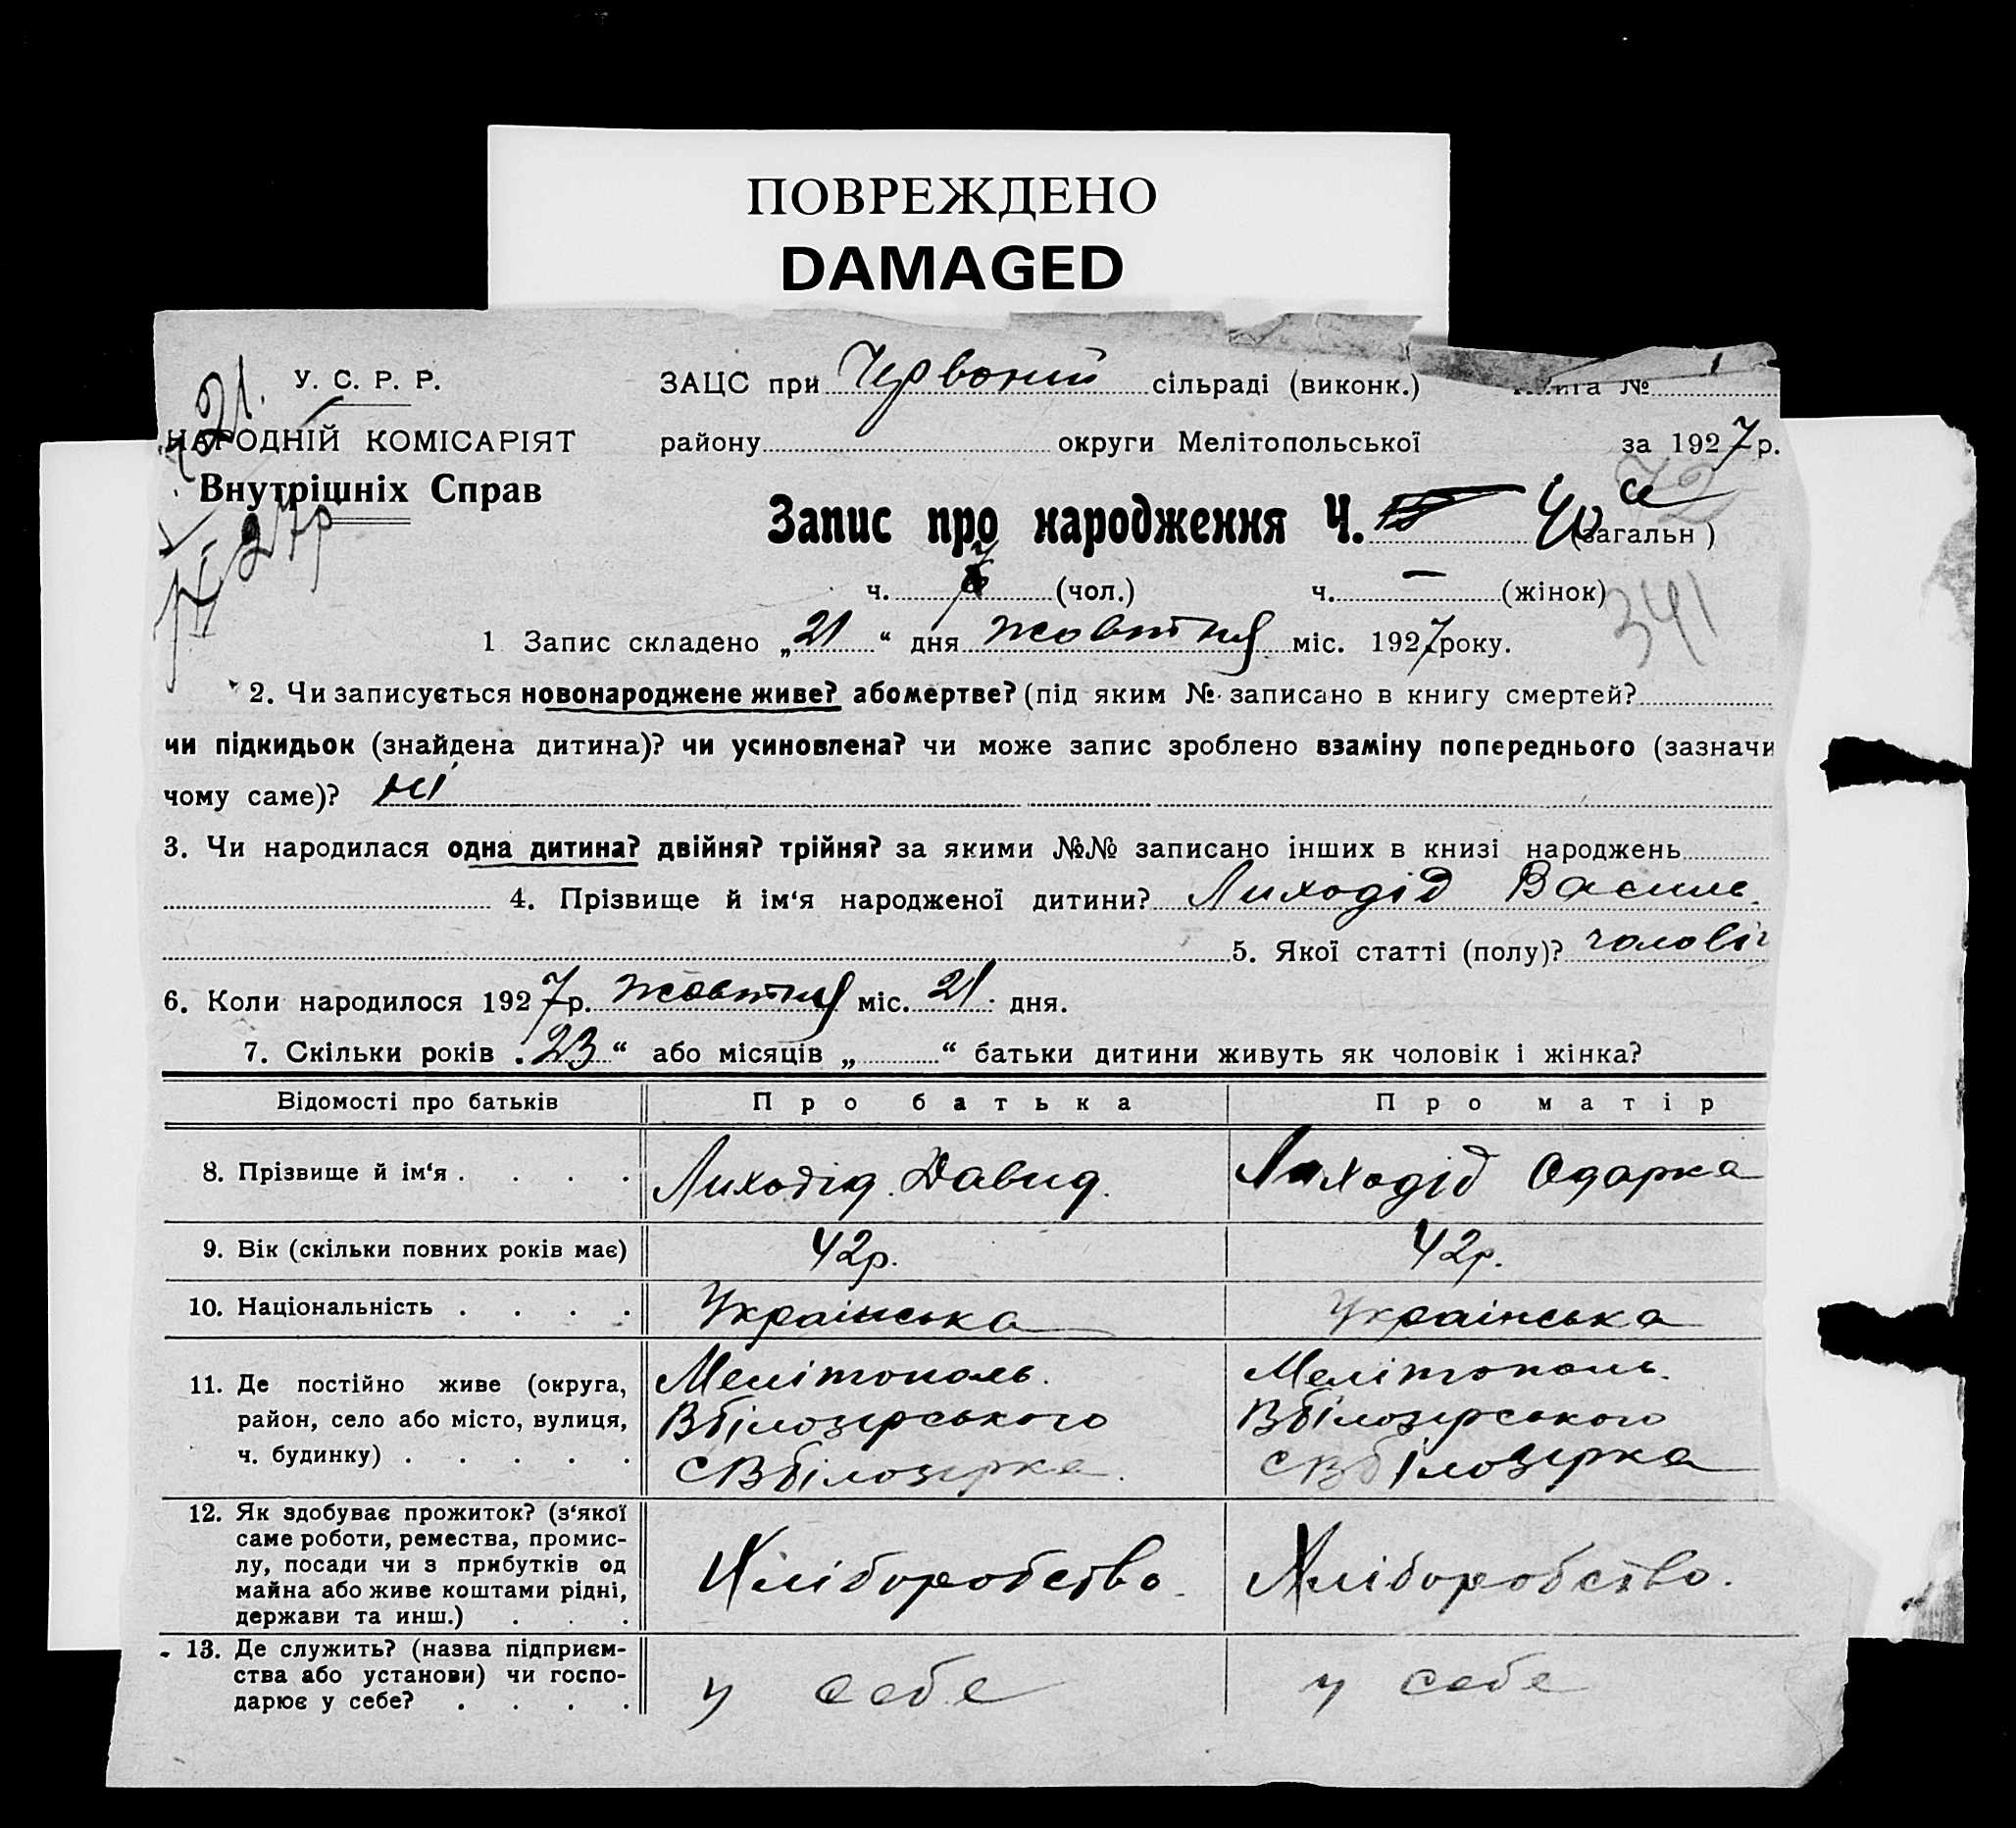 ПОВРЕЖДЕНО
DAMAGED
У. С. Р. Р.
НАРОДНІЙ КОМІСАРІЯТ
Внутрішніх Справ
21.
27р
ЗАЦС при Червоній сільраді (виконк.) книга № 1
району округи Мелітопольської за 1927 р.
72
Запис про народження Ч. 40 а (загальн)
ч. 7 (чол.) ч. — (жінок)
341
1 Запис складено „21“ дня жовтня міс. 1927 року.
2. Чи записується новонароджене живе? або мертве? (під яким № записано в книгу смертей?
чи підкидьок (знайдена дитина)? чи усиновлена? чи може запис зроблено взаміну попереднього (зазначи
чому саме)? ні
3. Чи народилася одна дитина? двійня? трійня? за якими №№ записано інших в книзі народжень
4. Прізвище й ім‘я народженої дитини? Лиходід Василь.
5. Якої статті (полу)? чоловіч
6. Коли народилося 1927 р. жовтня міс. 21. дня.
7. Скільки років „23“ або місяців „ “ батьки дитини живуть як чоловік і жінка?
Відомості про батьків Про батька Про матір
8. Прізвище й ім‘я . . . . Лиходід Давид. Лиходід Одарка
9. Вік (скільки повних років має) 42р. 42р.
10. Національність . . . . Українська Українська
11. Де постійно живе (округа, Мелітополь. Мелітополь.
район, село або місто, вулиця, Вбілозерського Вбілозерського
ч. будинку) . . . . . СВбілозерка. СВбілозерка
12. Як здобуває прожиток? (з‘якої
саме роботи, ремества, промис-
лу, посади чи з прибутків од
майна або живе коштами рідні,
держави та инш.) . . . Хліборобство. Хліборобство.
13. Де служить? (назва підприєм-
ства або установи) чи госпо-
дарює у себе? . . . . у себе у себе